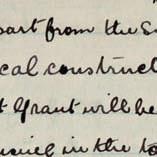 part from the
cal construct
Grant will be
in the